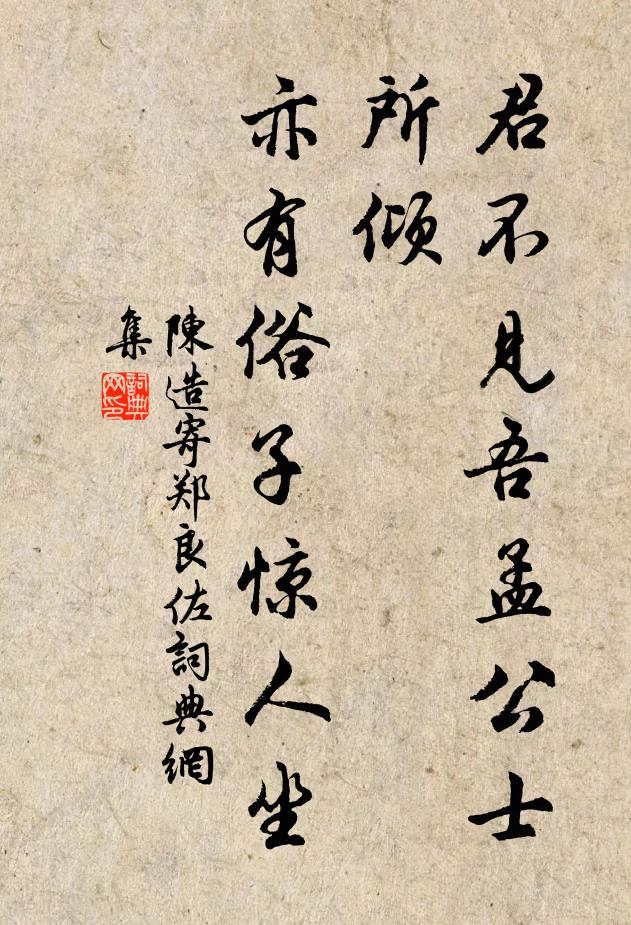 君不见吾孟公士
所倾
亦有俗子惊人坐
陳造寄郑良佐詞典網
集
詞典
网印